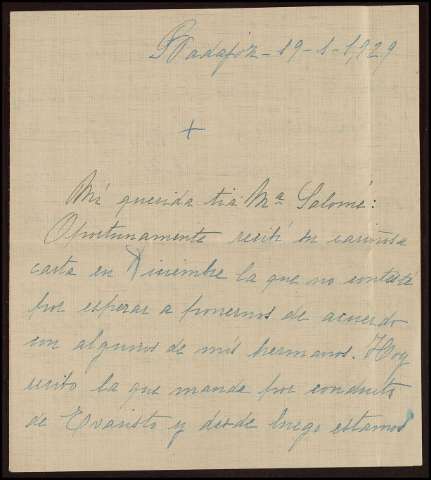 Badajoz - 19 - 1 - 1,929
+
Mi querida tia Mª Salomé:
Oportunamente recibí su cariñosa
carta en Diciembre la que no contesté
por esperar a ponernos de acuerdo
con algunos de mis hermanos. Hoy
recibo la que manda por conducto
de Evaristo y desde luego estamos